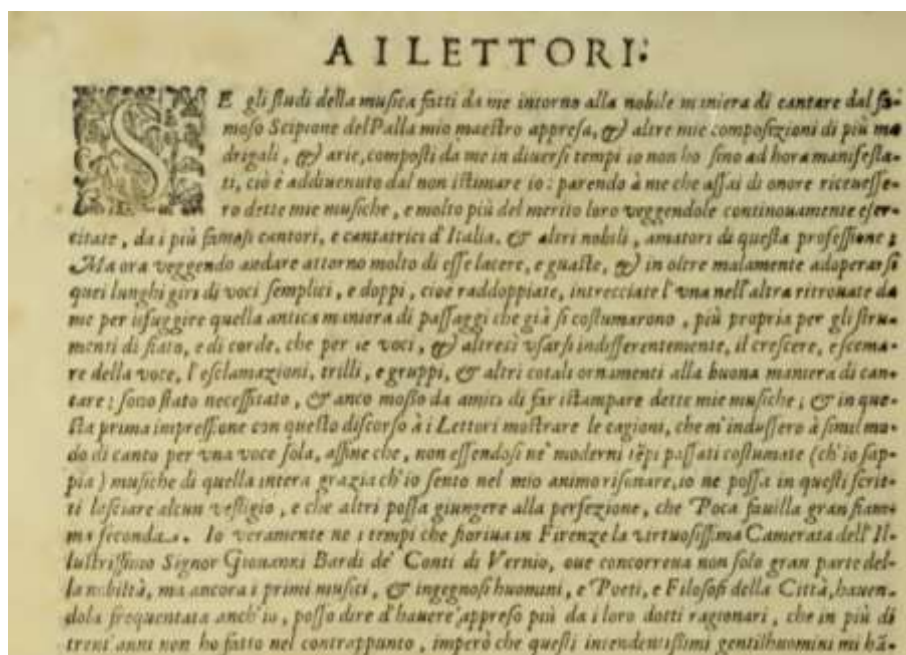 AI LETTORI:
SE gli ſtudi della muſica fatti da me intorno alla nobile maniera di cantare dal fa-
moſo Scipione del Palla mio maeſtro appreſa, & altre mie compoſizioni di più ma
drigali, & arie, compoſti da me in diuerſi tempi io non ho ſino ad hora manifeſta-
ti, ciò è adduenuto dal non iſtimare io: parendo à me che aſſai di onore riceueſſe-
ro dette mie muſiche, e molto più del merito loro veggendole continouamente eſer-
citate, da i più famoſi cantori, e cantatrici d'Italia, & altri nobili, amatori di queſta profeſſione;
Ma ora veggendo andare attorno molto di eſſe lacere, e guaſte, & in oltre malamente adoperarſi
quei lunghi giri di voci ſemplici, e doppi, cioè raddoppiate, intrecciate l'vna nell'altra ritrouate da
me per iſfuggire quella antica maniera di paſſaggi che già ſi coſtumarono, più propria per gli ſtru-
menti di fiato, e di corde, che per le voci, & altresì vſarſi indifferentemente, il creſcere, e ſcema-
re della voce, l'eſclamazioni, trilli, e gruppi, & altri cotali ornamenti alla buona maniera di can-
tare: ſono ſtato neceſſitato, & anco moſſo da amici di far iſtampare dette mie muſiche; & in que-
ſta prima impreſſione con queſto diſcorſo à i Lettori moſtrare le cagioni, che m'induſſero à ſimil mo-
do di canto per vna voce ſola, affine che, non eſſendoſi ne' moderni tẽpi paſſati coſtumate (ch'io ſap-
pia) muſiche di quella intera grazia ch'io ſento nel mio animo riſonare, io ne poſſa in queſti ſcrit-
ti laſciare alcun veſtigio, e che altri poſſa giungere alla perfezione, che Poca fauilla gran fiam-
ma ſeconda. Io veramente ne i tempi che fioriua in Firenze la virtuoſiſſima Camerata dell'Il-
luſtriſſimo Signor Giouanni Bardi de' Conti di Vernio, oue concorreua non ſolo gran parte del-
la nobiltà, ma ancora i primi muſici, & ingegnoſi huomini, e Poeti, e Filoſofi della Città, hauen-
dola frequentata anch'io, poſſo dire d'hauere appreſo più da i loro dotti ragionari, che in più di
trent'anni non ho fatto nel contrappunto, imperò che queſti intendentiſſimi gentilhuomini mi hã-